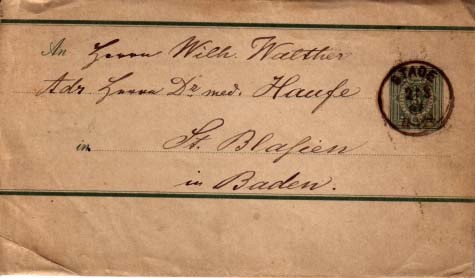 An Herrn Wilh. Walther
Adr. Herrn Dr med. Haufe
in St. Blasien
in Baden.
STADE